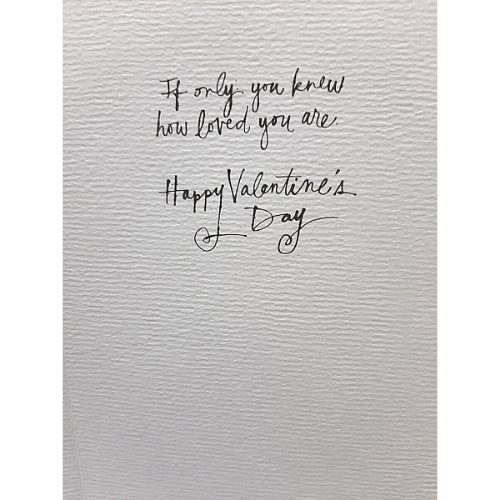 If only you knew
how loved you are.
Happy Valentine's
Day